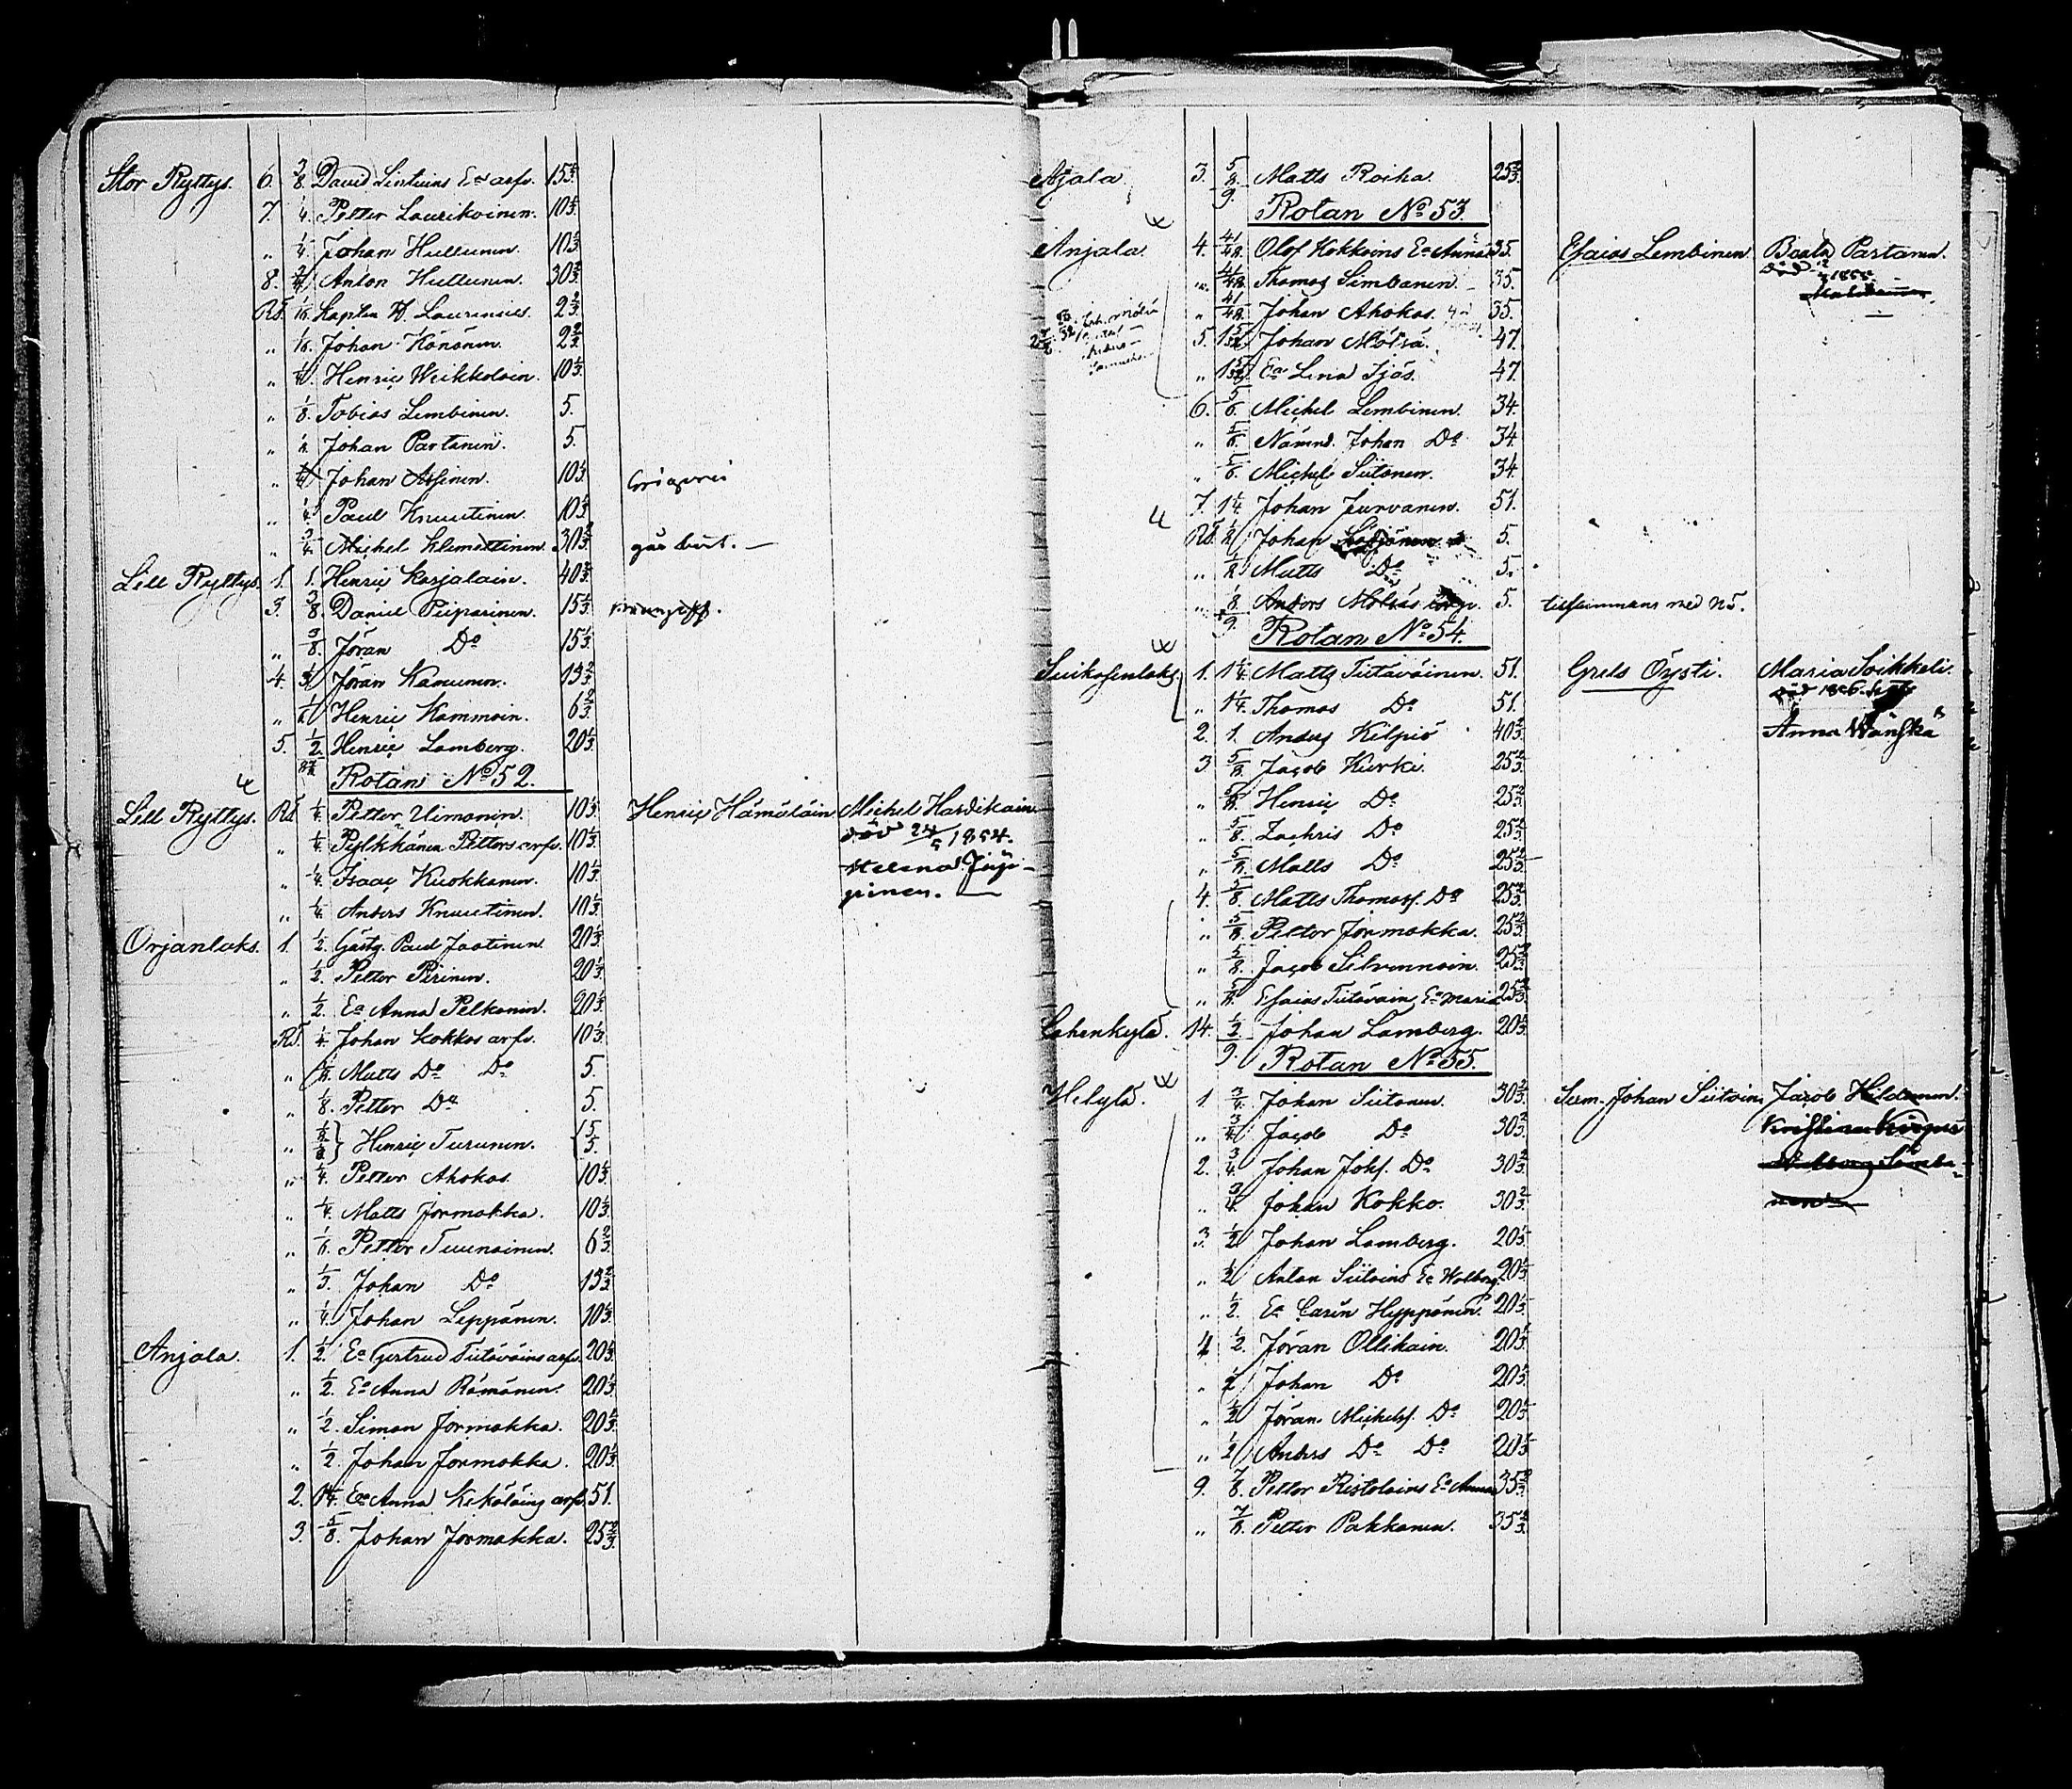 Stor Ryttys. 6. 3/8 David Lintuins Ea arfv. 15 1/3.
7. 1/4. Petter Laurikainen. 10 1/3.
„ 1/4 Johan Hullunen. 10 1/3.
8. 3/4 Anton Hullunen. 30 2/3.
Rå. 1/16. Kaplan 2 2/3.
„ 1/16. Johan Hänönen. 2 2/3.
„ 1/4. Henric Weikkolain. 10 1/3.
„ 1/8. Tobias Lembinen. 5.
„ 1/8. Johan Partanen. 5.
„ 1/4 Johan Assinen. 10 1/3.
„ 1/4 Paul Knuutinen. 10 1/3
„ 3/4. Michel Klemettinen. 30 2/3
Lill Ryttys. 1. 1. Henric Karjalain. 40 2/3.
3. 3/8. Daniel Piiparinen. 15 1/3.
„ 3/8. Jöran Do 15 1/3
4. 1/3. Jöran Kämunen. 13 2/3
„ Henric Kammoin. 6 2/3.
5. 1/2. Henric Lamberg. 20 1/3.
Rotan No 52.
Lill Ryttys. Rå 1/4. Petter Uimonen. 10 1/3. Henric Hämäläin Michel Hardikain
„ 1/4. Pylkkänen Petters arfv. 10 1/3. död 24/5 1854.
„ 1/4. Isaac Kuokkanen. 10 1/3. Helena
„ 1/4. Anders Knuutinen. 10 1/3. pinen.
Orjanlaks. 1. 1/2. Gästg. Paul Jaatinen 20 1/3.
„ 1/2. Petter Pirinen. 20 1/3.
„ 1/2. Ea Anna Pelkonen. 20 1/3.
Rå. 1/4. Johan Kokkos arfv. 10 1/3.
„ 1/8. Matts Do Do 5.
„ 1/8. Petter Do 5.
„ 1/8 1/8 } Henric Turunen. { 5 5.
„ 1/4. Petter Ahokas. 10 1/3.
„ 1/4. Matts Jormakka. 10 1/3.
„ 1/6. Petter Tuunainen. 6 2/3.
„ 1/3. Johan Do 13 2/3
„ 1/4. Johan Leppänen. 10 1/3.
Anjala. 1. 1/2. Ea Gertrud Tiitäväins arfv. 20 1/3.
„ 1/2. Ea Anna Rämänen. 20 1/3.
„ 1/2. Simon Jormakka. 20 1/3.
„ 1/2. Johan Jormakka. 20 1/3.
2. 1 1/4. Ea Anna Kekäläins arfv. 51.
3. 5/8. Johan Jormakka. 25 2/3.
Ajala 3. 5/8 Matts Roiha. 25 2/3.
9. Rotan No 53.
Anjala 4. 41/48 Olof Kokkoins Ea Anna 35. Esaias Lembinen. Beata Partanen.
„ 41/48 Thomas Simbanen. 35. död 1855.
„ 41/48 Johan Ahokas. 35.
5. Johan Mölsä. 47.
„ Ea Lena Ijäs. 47.
6. 5/6. Michel Lembinen. 34.
„ 5/6. Nämnd. Johan Do 34
„ 5/6. Michel Siitonen. 34.
7. 1 1/4. Johan Jurvanen. 51.
Rå. 1/8 Johan 5.
„ 1/8 Matts Do 5.
„ 1/8 Anders Mölsäs 5. tilsammans med N5.
9. Rotan No 54.
Suikasenlaks. 1. 1 1/4. Matts Tiitäväinen. 51. Grels Öysti. Maria Soikkeli.
„ 1 1/4. Thomas Do 51. död 1856.
2. 1. Anders Kilpiö 40 2/3. Anna Wänskä
3. 5/8. Jacob Kurki. 25 2/3.
„ 5/8. Henric Do 25 2/3.
„ 5/8. Zachris Do 25 2/3.
„ 5/8. Matts Do 25 2/3
4. 5/8. Matts Thomass. Do 25 2/3.
„ 5/8. Petter Jormakka. 25 2/3.
„ 5/8. Jacob Silvennoin. 25 2/3.
„ 5/8. Esaias Tiitäväin Ea Maria 25 2/3.
Lahenkylä. 14. 1/2. Johan Lamberg. 20 1/3.
9. Rotan No 55.
Helylä. 1. 3/4. Johan Siitonen. 30 2/3. Johan Siitoin Jacob Hildenen.
„ 3/4 Jacob Do 30 2/3.
2. 3/4. Johan Johs. Do 30 2/3
„ 3/4. Johan Kokko. 30 2/3.
3. 1/2 Johan Lamberg. 20 1/3.
„ 1/2 Anton Siitoins Ea Walborg. 20 1/3
„ 1/2. Ea Carin Hyppönen. 20 1/3.
4 1/2. Jöran Ollikain. 20 1/3.
„ 1/2 Johan Do 20 1/3.
„ 1/2 Jöran Michelss. Do 20 1/3
„ 1/2 Anders Do Do 20 1/3
9. 7/8. Petter Ristolains Ea Anna 35 2/3.
„ 7/8. Petter Pakkanen. 35 2/3.